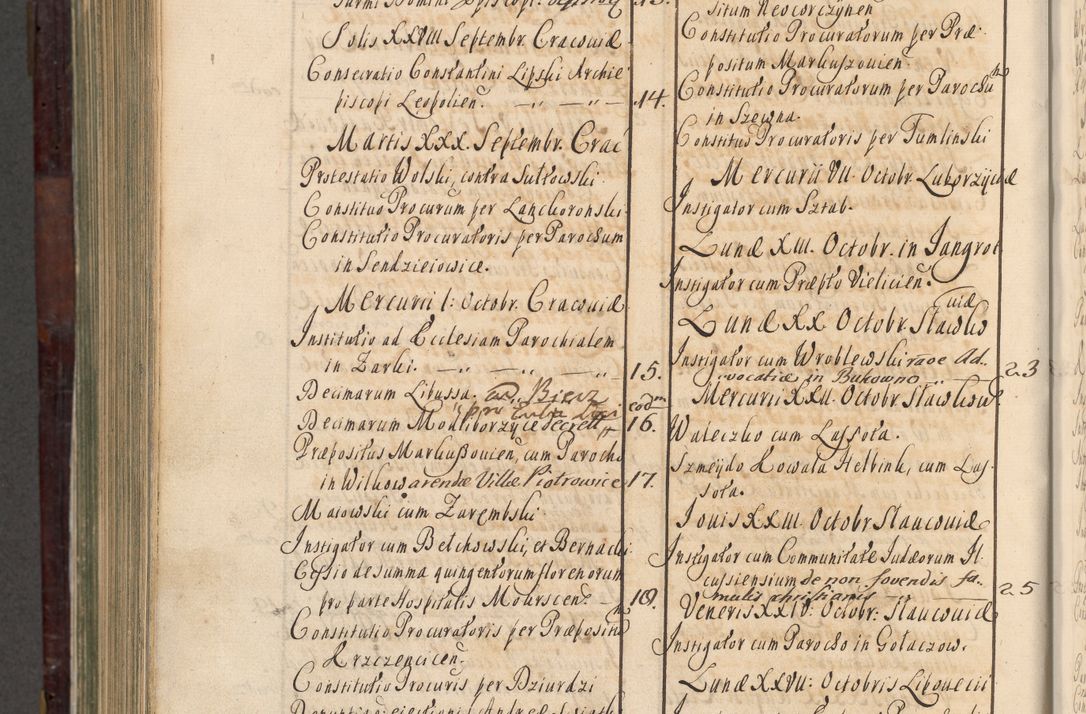 Solis XXVIII Septembr. Cracoviæ
Consecratio Constantini Lipski Archie
piscopi Leopolien. 14.
Martis XXX. Septembr. Crac
Protestatio Wolski, contra Sułkowski
Constitutio Procurum per Lanckoronski
Constitutio Procuratoris per Parochum
in Sendzieiowice.
Mercurii I: Octobr. Cracoviæ
Institutio ad Ecclesiam Parochialem
in Żarki. 15.
Decimarum Libussa. ad Biecz eodm
pro
Decimarum Modliborzyce 16.
Præpositus Markussovien, cum Parocho
in Wilkow arendæ Villæ Piotrowice 17.
Maiowski cum Zarembski
Instigator cum Bełchowski, et Bernacki
Cessio de summa quingentorum florenorum
pro parte Hospitalis Mourscen. 18.
Constitutio Procuratoris per Præpositum
Krzczencicen.
Constitutio Procuris per Dziurdzi
situm Neocorczynen
Constitutio Procuratorum per Præ
positum Markuszovien.
Constitutio Procuratorum per Parochum
in Szewna.
Constitutio Procuratoris per Tumlinski
Mercurii VII. Octobr. Luborzyciæ
Instigator cum Sztab.
Lunæ XIII. Octobr. in Jangrot
Instigator cum Præpto Vielicien.
Lunæ XX Octobr. Slawko
viæ
Instigator cum Wroblewski raoe Ad
vocatiæ in Bukowno 23
Mercurii XXII. Octobr Slawkow
Waleczko cum Lassota.
Szmeydo Kowala Helbink, cum Las
sota.
Jovis XXIII. Octobr Slaucoviæ
Instigator cum Communitate Judæorum Il
cussiensium de non fovendis fa
mulis christianis 25
Veneris XXIV: Octobr: Slaucoviæ
Instigator cum Parocho in Gołaczow.
Lunæ XXVII: Octobris Lipovecii